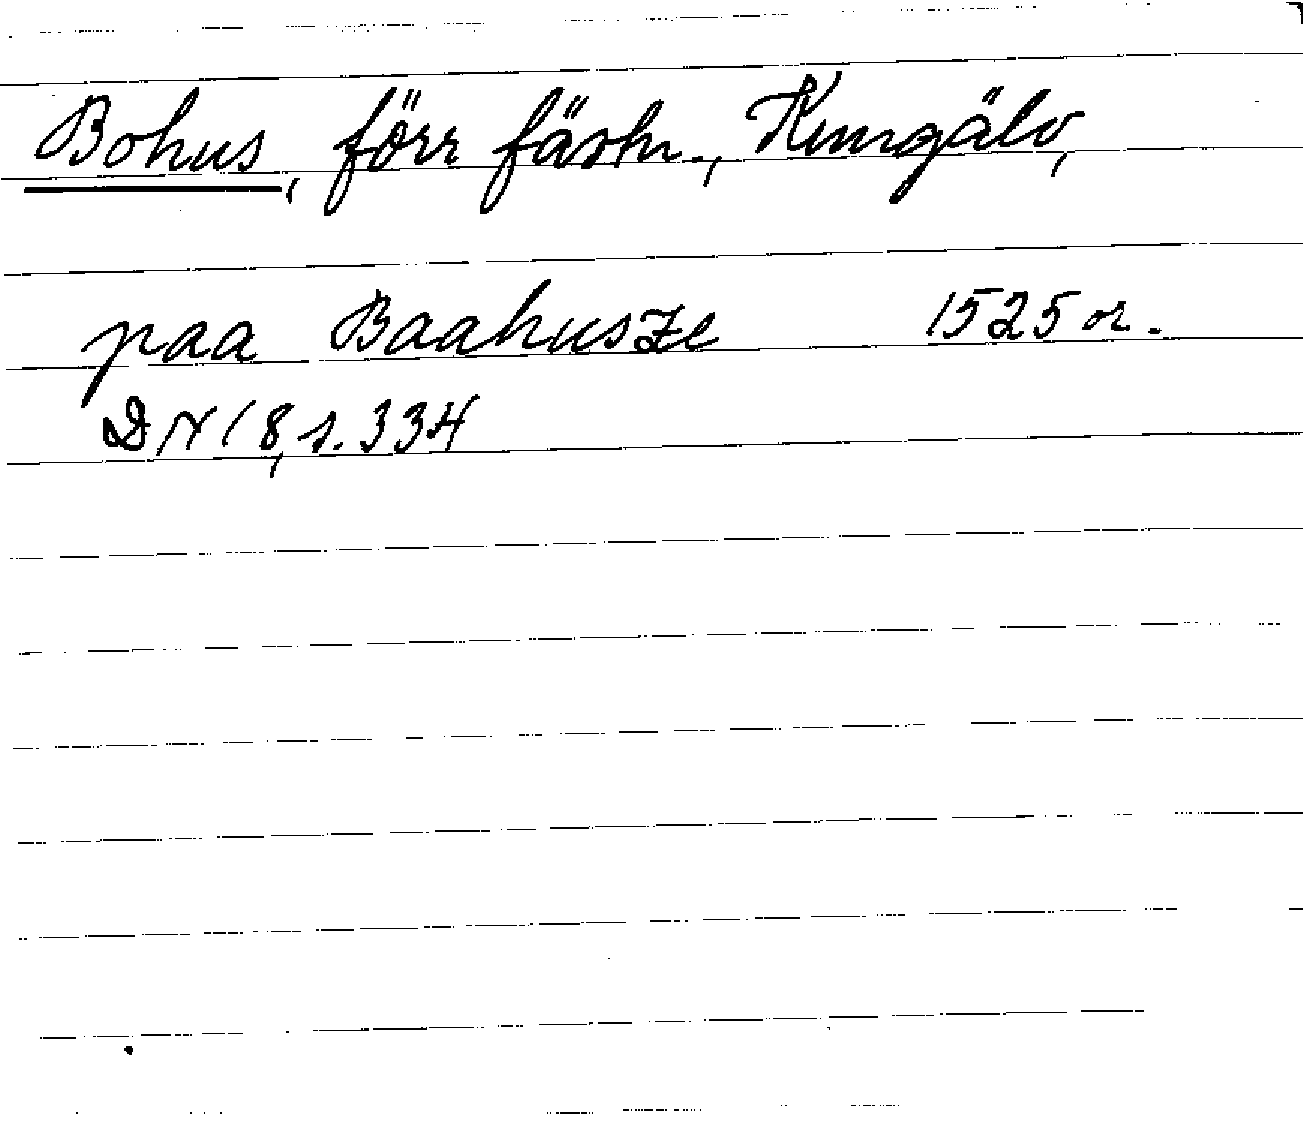 Bohus, förr fästn., Kungälv,
paa Baahusze 1525 or.
DN 18, s. 334